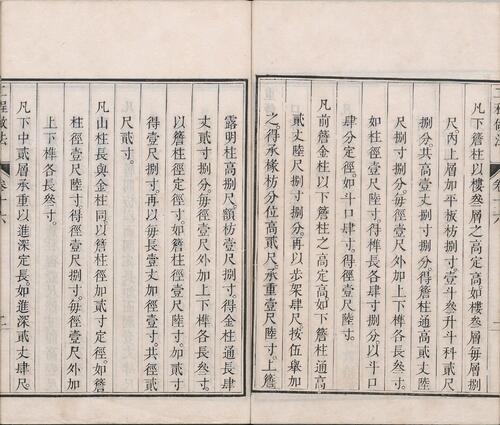 工程做法 卷十六 二
凡下簷柱以樓叄層定高。如樓叄層每層捌
尺。內上層加平板枋捌寸。壹斗叄升斗科貳尺
捌分。共高壹丈捌寸捌分。得簷柱通高貳丈陸
尺捌寸捌分。每徑壹尺。外加上下榫各長叄寸。
如柱徑壹尺陸寸。得榫長各肆寸捌分。以斗口
肆分定徑。如斗口肆寸。得徑壹尺陸寸。
凡前簷金柱以下簷柱之高定高。如下簷柱通高
貳丈陸尺捌寸捌分。再以步架肆尺。按伍舉加
之。得承椽枋分位高貳尺。承重壹尺陸寸。上簷
露明柱高捌尺。額枋壹尺捌寸。得金柱通長肆
丈貳寸捌分。每徑壹尺外加上下榫各長叄寸。
以簷柱徑定徑寸。如簷柱徑壹尺陸寸。加貳寸。
得徑壹尺捌寸。再以每長壹丈加徑壹寸。共徑貳
尺貳寸。
凡山柱長與金柱同。以簷柱徑加貳寸定徑。如簷
柱徑壹尺陸寸。得徑壹尺捌寸。每徑壹尺外加
上下榫各長叄寸。
凡下中貳層承重以進深定長。如進深貳丈肆尺。
工程做法 卷十六 二